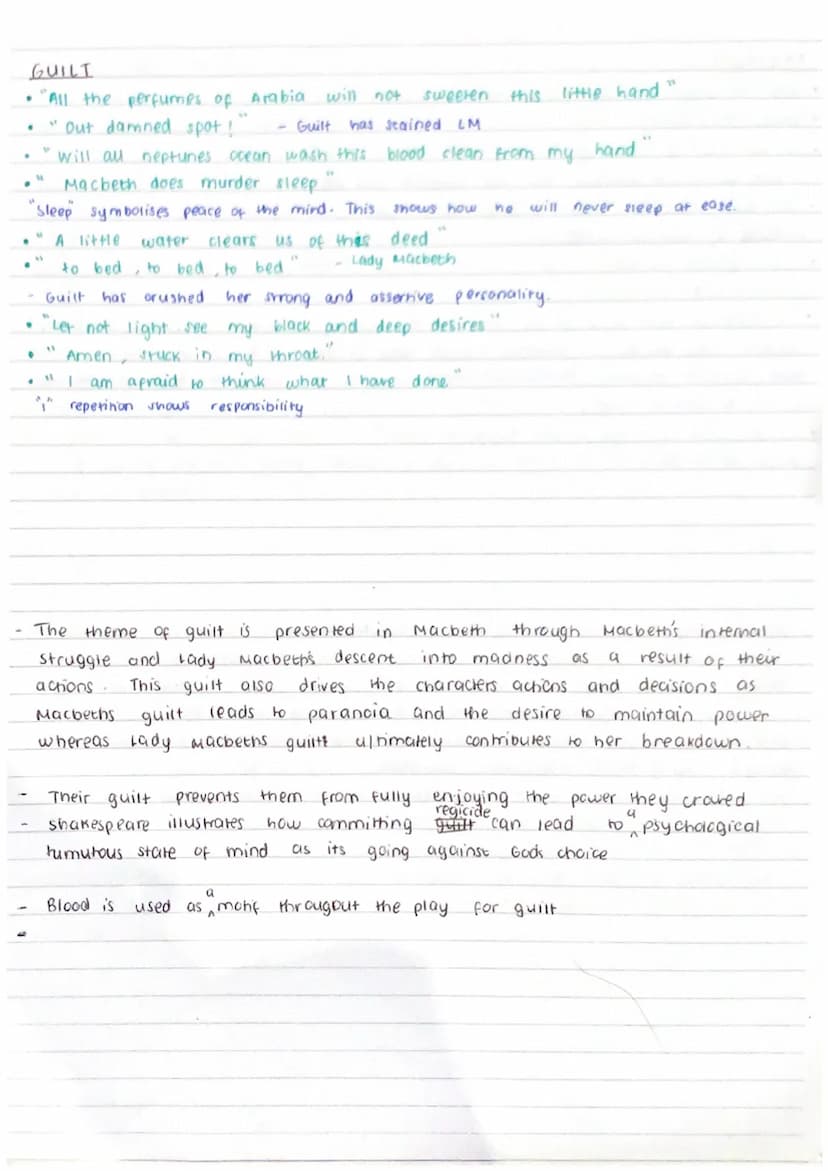 GUILT
• "All the perfumes of Arabia will not sweeten this little hand"
• "Out damned spot!" - Guilt has stained LM
• "Will all neptunes ocean wash this blood clean from my hand"
• "Macbeth does murder sleep"
"Sleep" symbolises peace of the mind. This shows how he will never sleep at ease.
• "A little water clears us of this deed"
• "to bed, to bed, to bed" - Lady Macbeth
- Guilt has crushed her strong and assertive personality.
• "Let not light see my black and deep desires"
• "Amen, stuck in my throat."
• "I am afraid to think what I have done"
"I" repetition shows responsibility
- The theme of guilt is presented in Macbeth through Macbeth's internal
struggle and Lady Macbeth's descent into madness as a result of their
actions. This guilt also drives the characters actions and decisions as
Macbeths guilt leads to paranoia and the desire to maintain power
whereas Lady Macbeths guilt ultimately contributes to her breakdown.
- Their guilt prevents them from fully enjoying the power they craved
- Shakespeare illustrates how committing regicide can lead to a psychological
tumutous state of mind as its going against Gods choice
- Blood is used as a motif througout the play for guilt
-